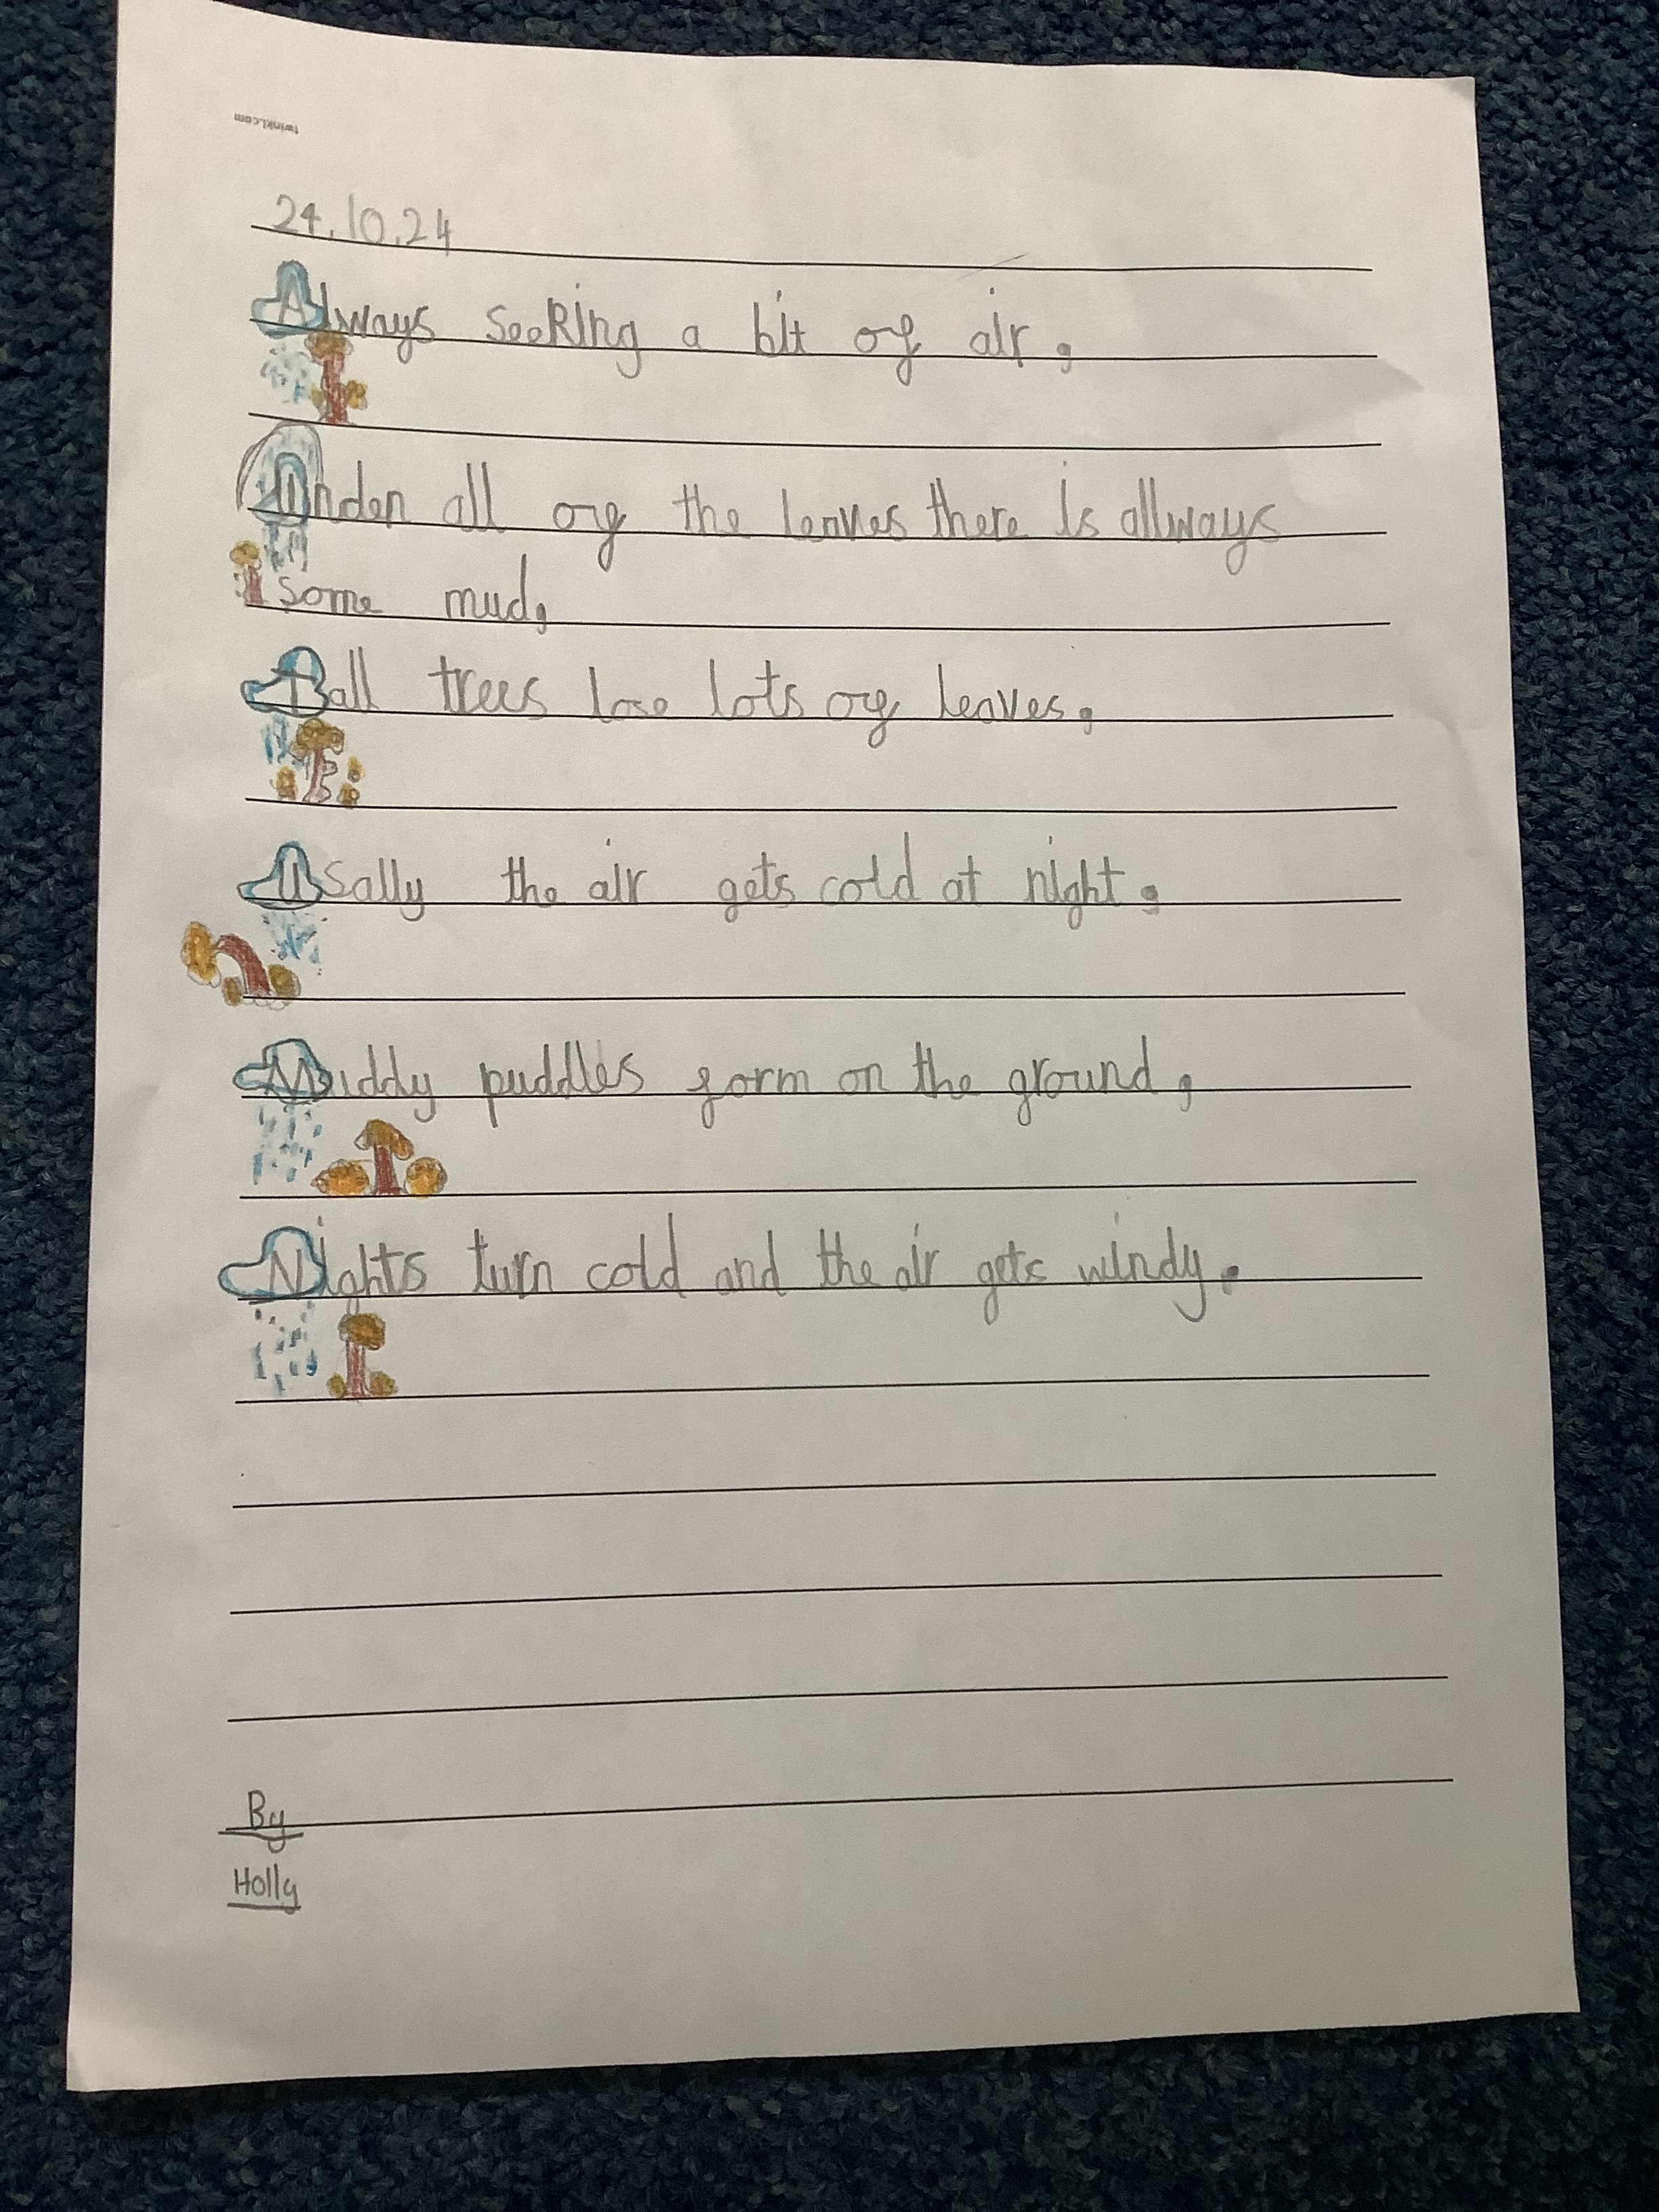 twinkl.com
24.10.24
Always seeking a bit of air,
Under all of the leaves there is allways
some mud,
Tall trees lose lots of leaves,
Usally the air gets cold at night,
Muddy puddles form on the ground,
Nights turn cold and the air gets windy.
By
Holly